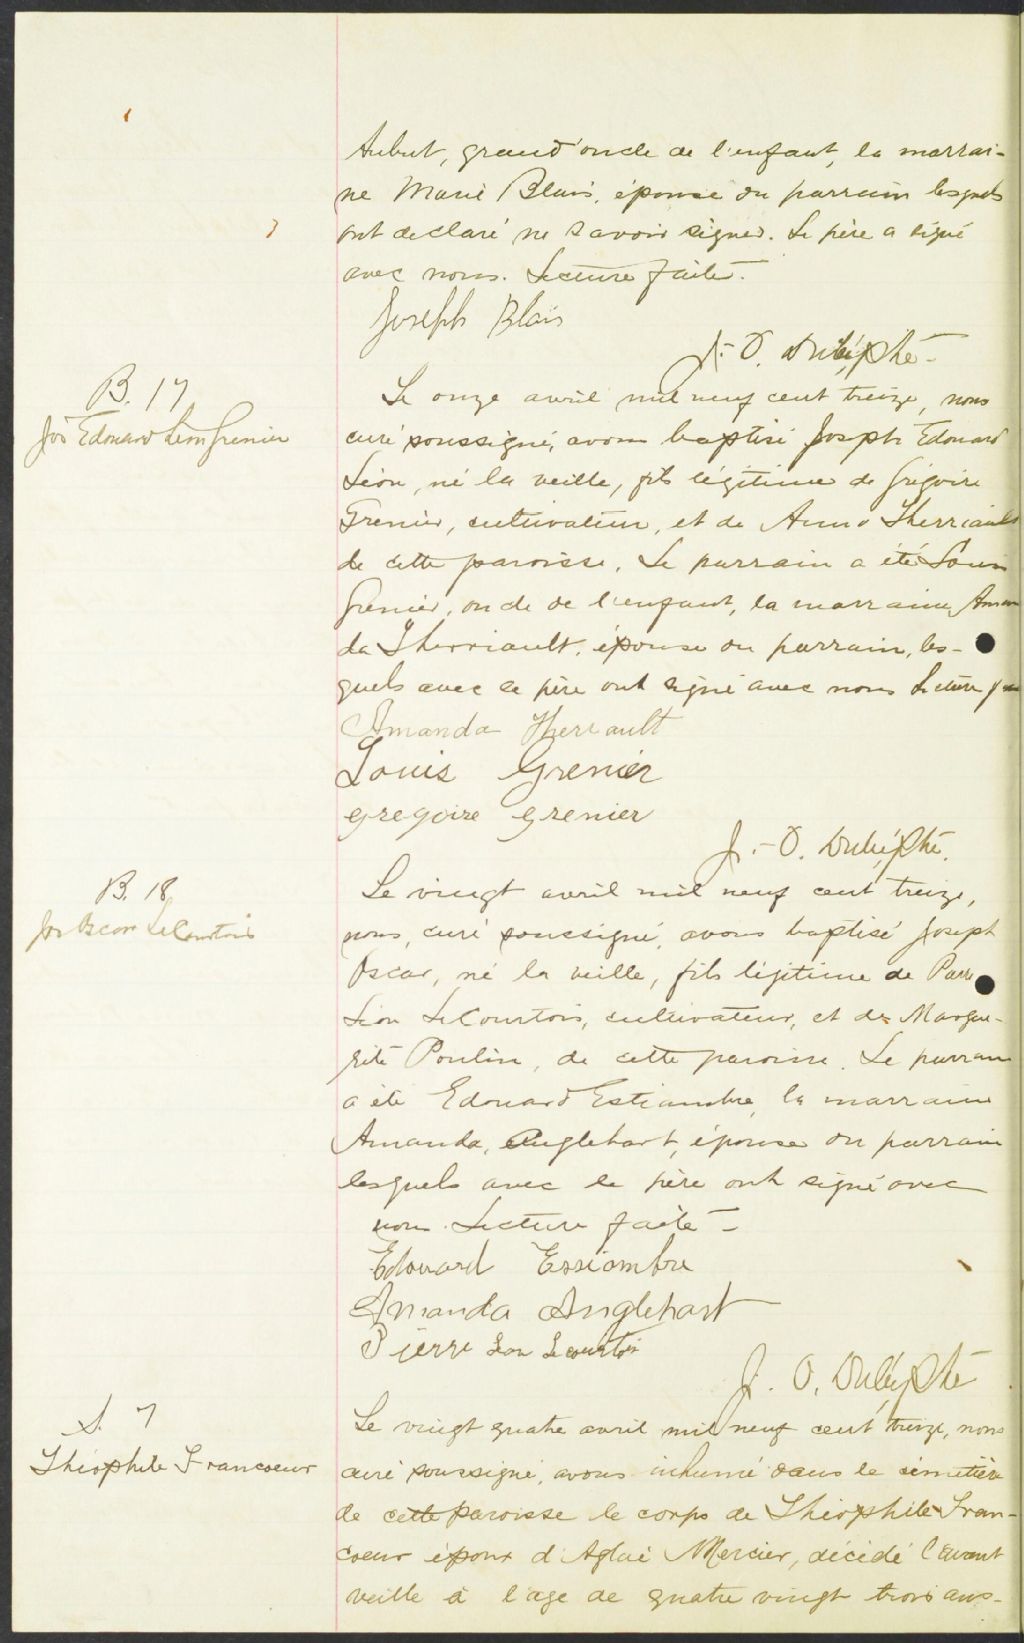 Aubut, grand'oncle de l'enfant, la marrai-
ne Marie Blais, épouse du parrain lesquels
ont declaré ne savoir signer. Le père a signé
avec nous. Lecture faite.
Joseph Blais
J.-D. Dubé, Ptre
B. 17
Jos Edouard Léon Grenier
Le onze avril mil neuf cent treize, nous
curé soussigné, avons baptisé Joseph Edouard
Léon, né la veille, fils légitime de Grégoire
Grenier, cultivateur, et de Anna Therriault
de cette paroisse. Le parrain a été Louis
Grenier, oncle de l'enfant, la marraine Aman
da Therriault, épouse du parrain, les-
quels avec le père ont signé avec nous Lecture
Amanda Therriault
Louis Grenier
gregoire grenier
J.-D. Dubé, Ptre.
B. 18
Jos Oscar LeCourtois
Le vingt avril mil neuf cent treize,
nous, curé soussigné, avons baptisé Joseph
Oscar, né la veille, fils légitime de Pierre
Léon LeCourtois, cultivateur, et de Margue-
rite Poulin, de cette paroisse. Le parrain
a été Edouard Estiambre, la marraine
Amanda, Anglehart, épouse du parrain
lesquels avec le père ont signé avec
nous. Lecture faite-
Edouard Essiambre
Amanda Anglehart
Pierre Leon Lecourtois
J. D. Dubé, Ptre
S. 7
Théophile Francoeur
Le vingt quatre avril mil neuf cent treize, nous
curé soussigné, avons inhumé dans le cimetière
de cette paroisse le corps de Théophile Fran-
coeur époux d'Aglaé Mercier, décédé l'avant
veille à l'age de quatre vingt trois ans-